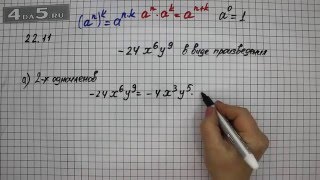 4DA5.RU
(aⁿ)ᵏ = aⁿ·ᵏ aⁿ·aᵏ = aⁿ⁺ᵏ a⁰ = 1
22.11
-24x⁶y⁹ в виде произведения
а) 2-х одночленов
-24x⁶y⁹ = -4x³y⁵·